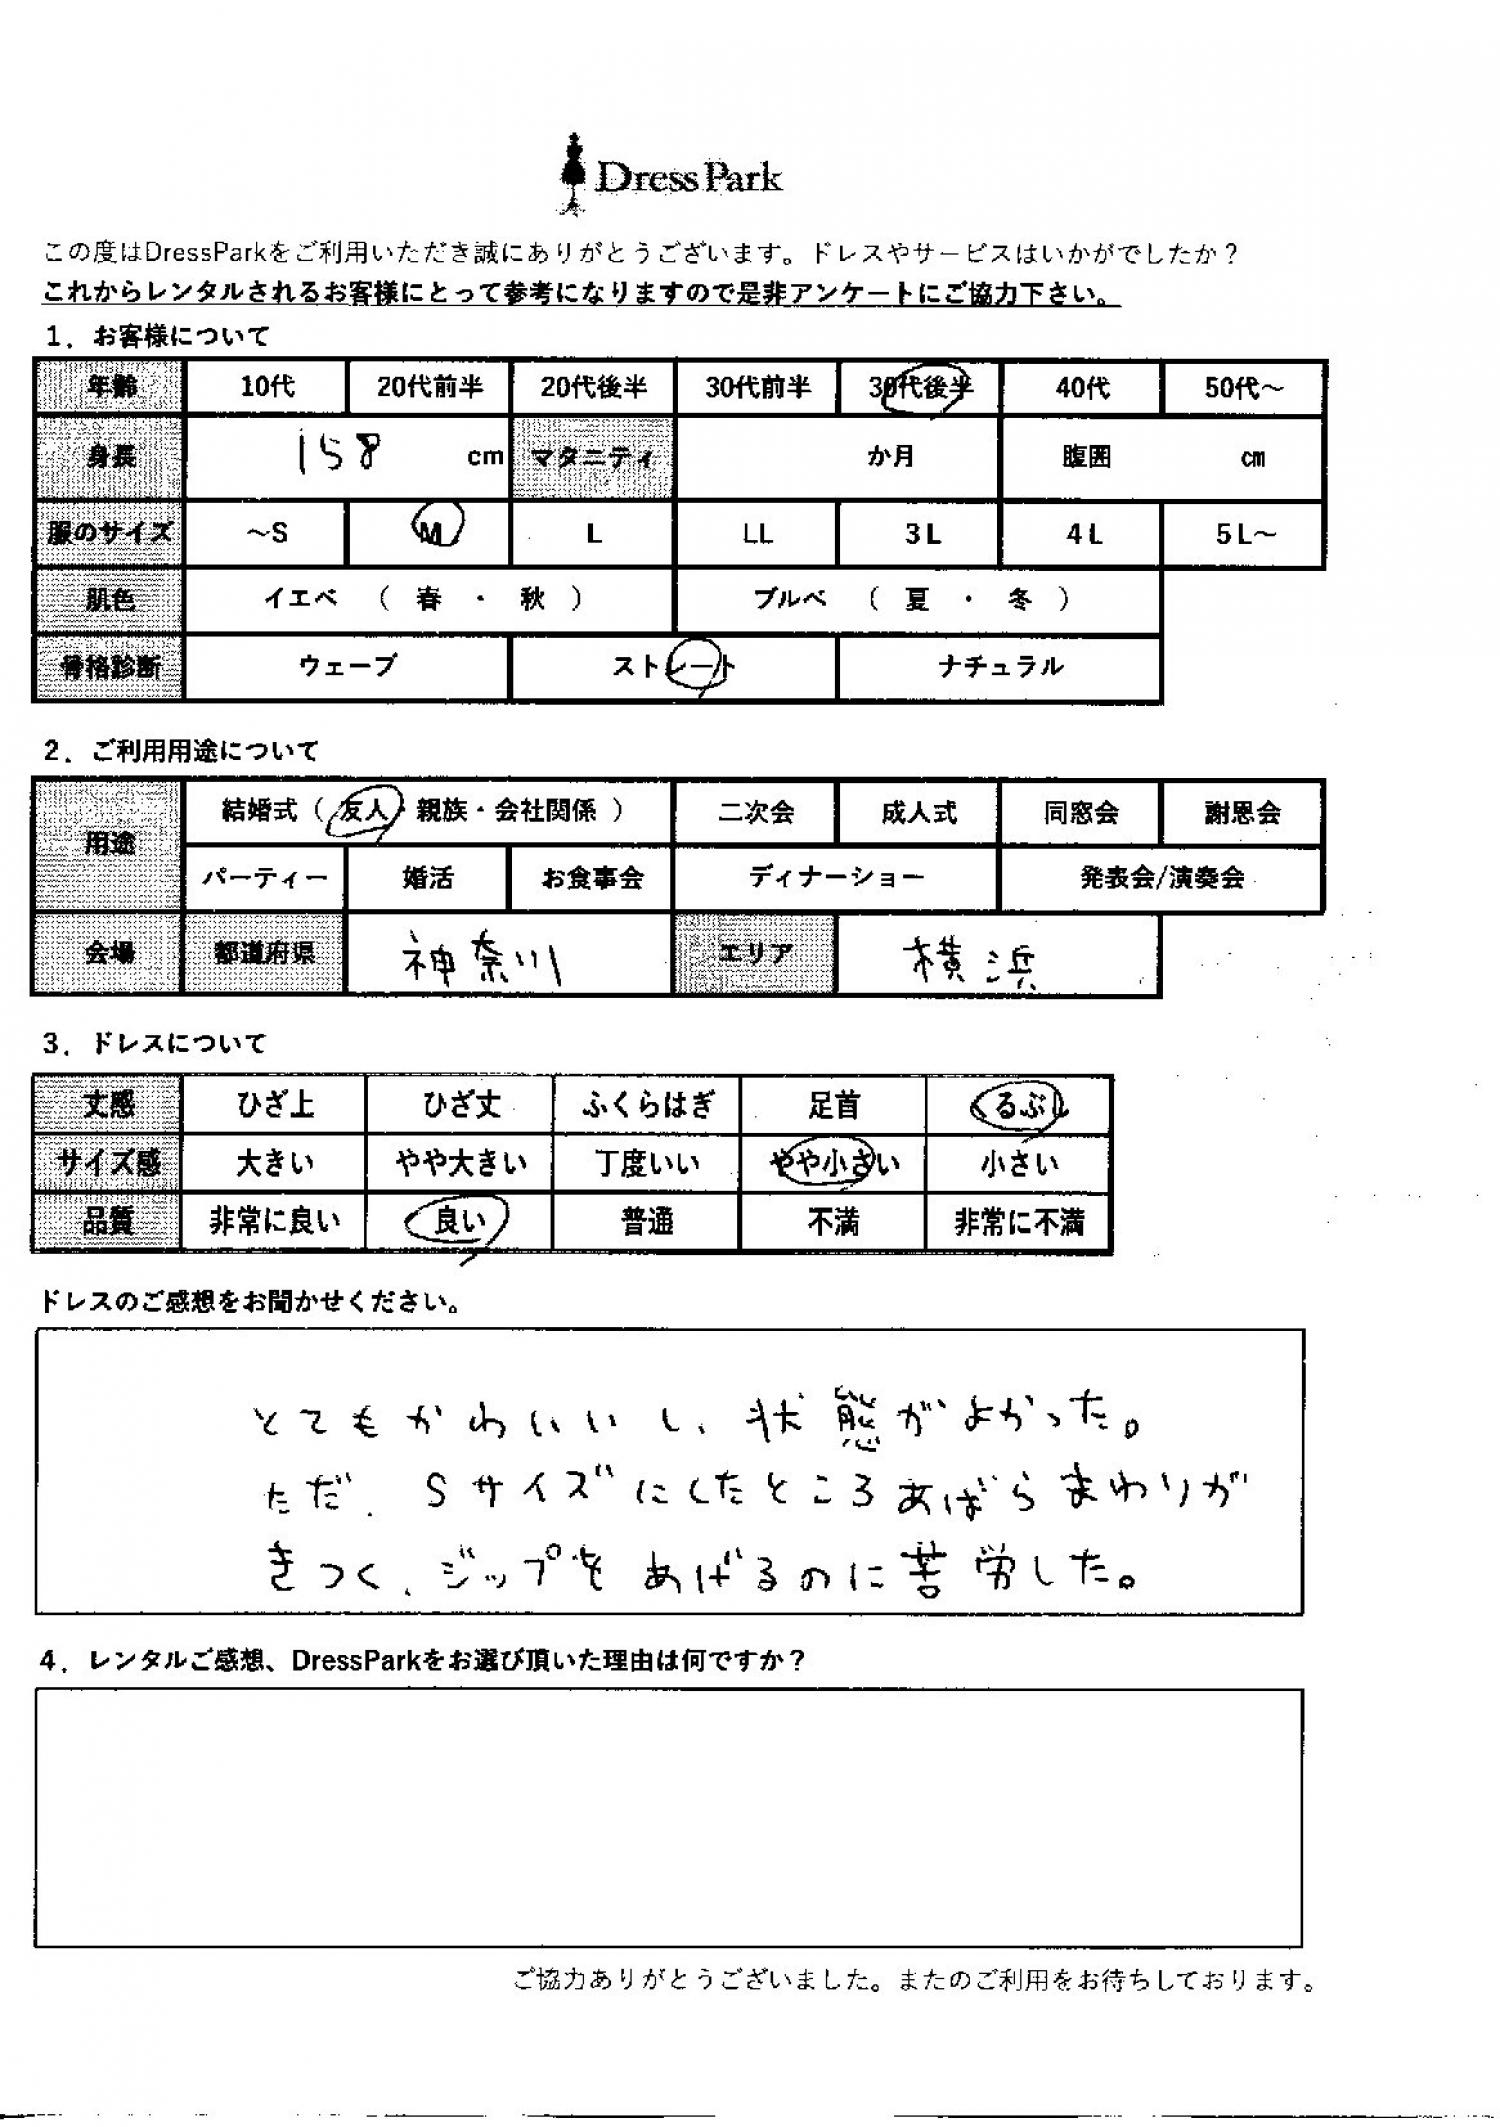 Dress Park
この度はDressParkをご利用いただき誠にありがとうございます。ドレスやサービスはいかがでしたか？
これからレンタルされるお客様にとって参考になりますので是非アンケートにご協力下さい。
1．お客様について
年齢 10代 20代前半 20代後半 30代前半 30代後半 40代 50代～
身長 158 cm マタニティ か月 腹囲 cm
服のサイズ ～S M L LL 3L 4L 5L～
肌色 イエベ （ 春 ・ 秋 ） ブルベ （ 夏 ・ 冬 ）
骨格診断 ウェーブ ストレート ナチュラル
2．ご利用用途について
用途 結婚式（ 友人・親族・会社関係 ） 二次会 成人式 同窓会 謝恩会
パーティー 婚活 お食事会 ディナーショー 発表会/演奏会
会場 都道府県 神奈川 エリア 横浜
3．ドレスについて
丈感 ひざ上 ひざ丈 ふくらはぎ 足首 くるぶし
サイズ感 大きい やや大きい 丁度いい やや小さい 小さい
品質 非常に良い 良い 普通 不満 非常に不満
ドレスのご感想をお聞かせください。
とてもかわいいし、状態がよかった。
ただ、Sサイズにしたところあばらまわりが
きつく、ジップをあげるのに苦労した。
4．レンタルご感想、DressParkをお選び頂いた理由は何ですか？
ご協力ありがとうございました。またのご利用をお待ちしております。